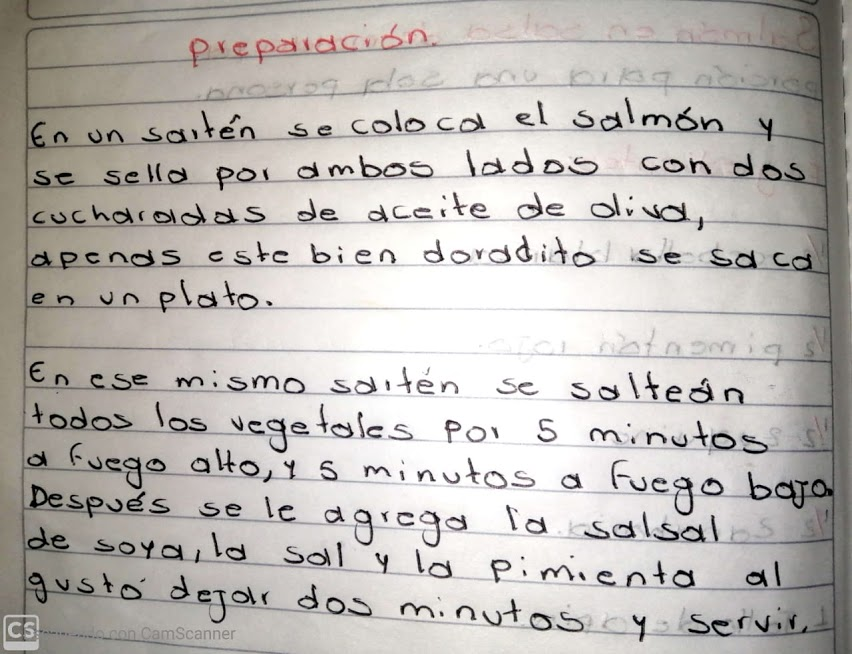 preparación.
En un sartén se coloca el salmón y
se sella por ambos lados con dos
cucharadas de aceite de oliva,
apenas este bien doradito se saca
en un plato.
En ese mismo sartén se salteán
todos los vegetales por 5 minutos
a fuego alto, y 5 minutos a fuego bajo.
Después se le agrega la salsal
de soya, la sal y la pimienta al
gusto dejar dos minutos y servir.
CS con CamScanner